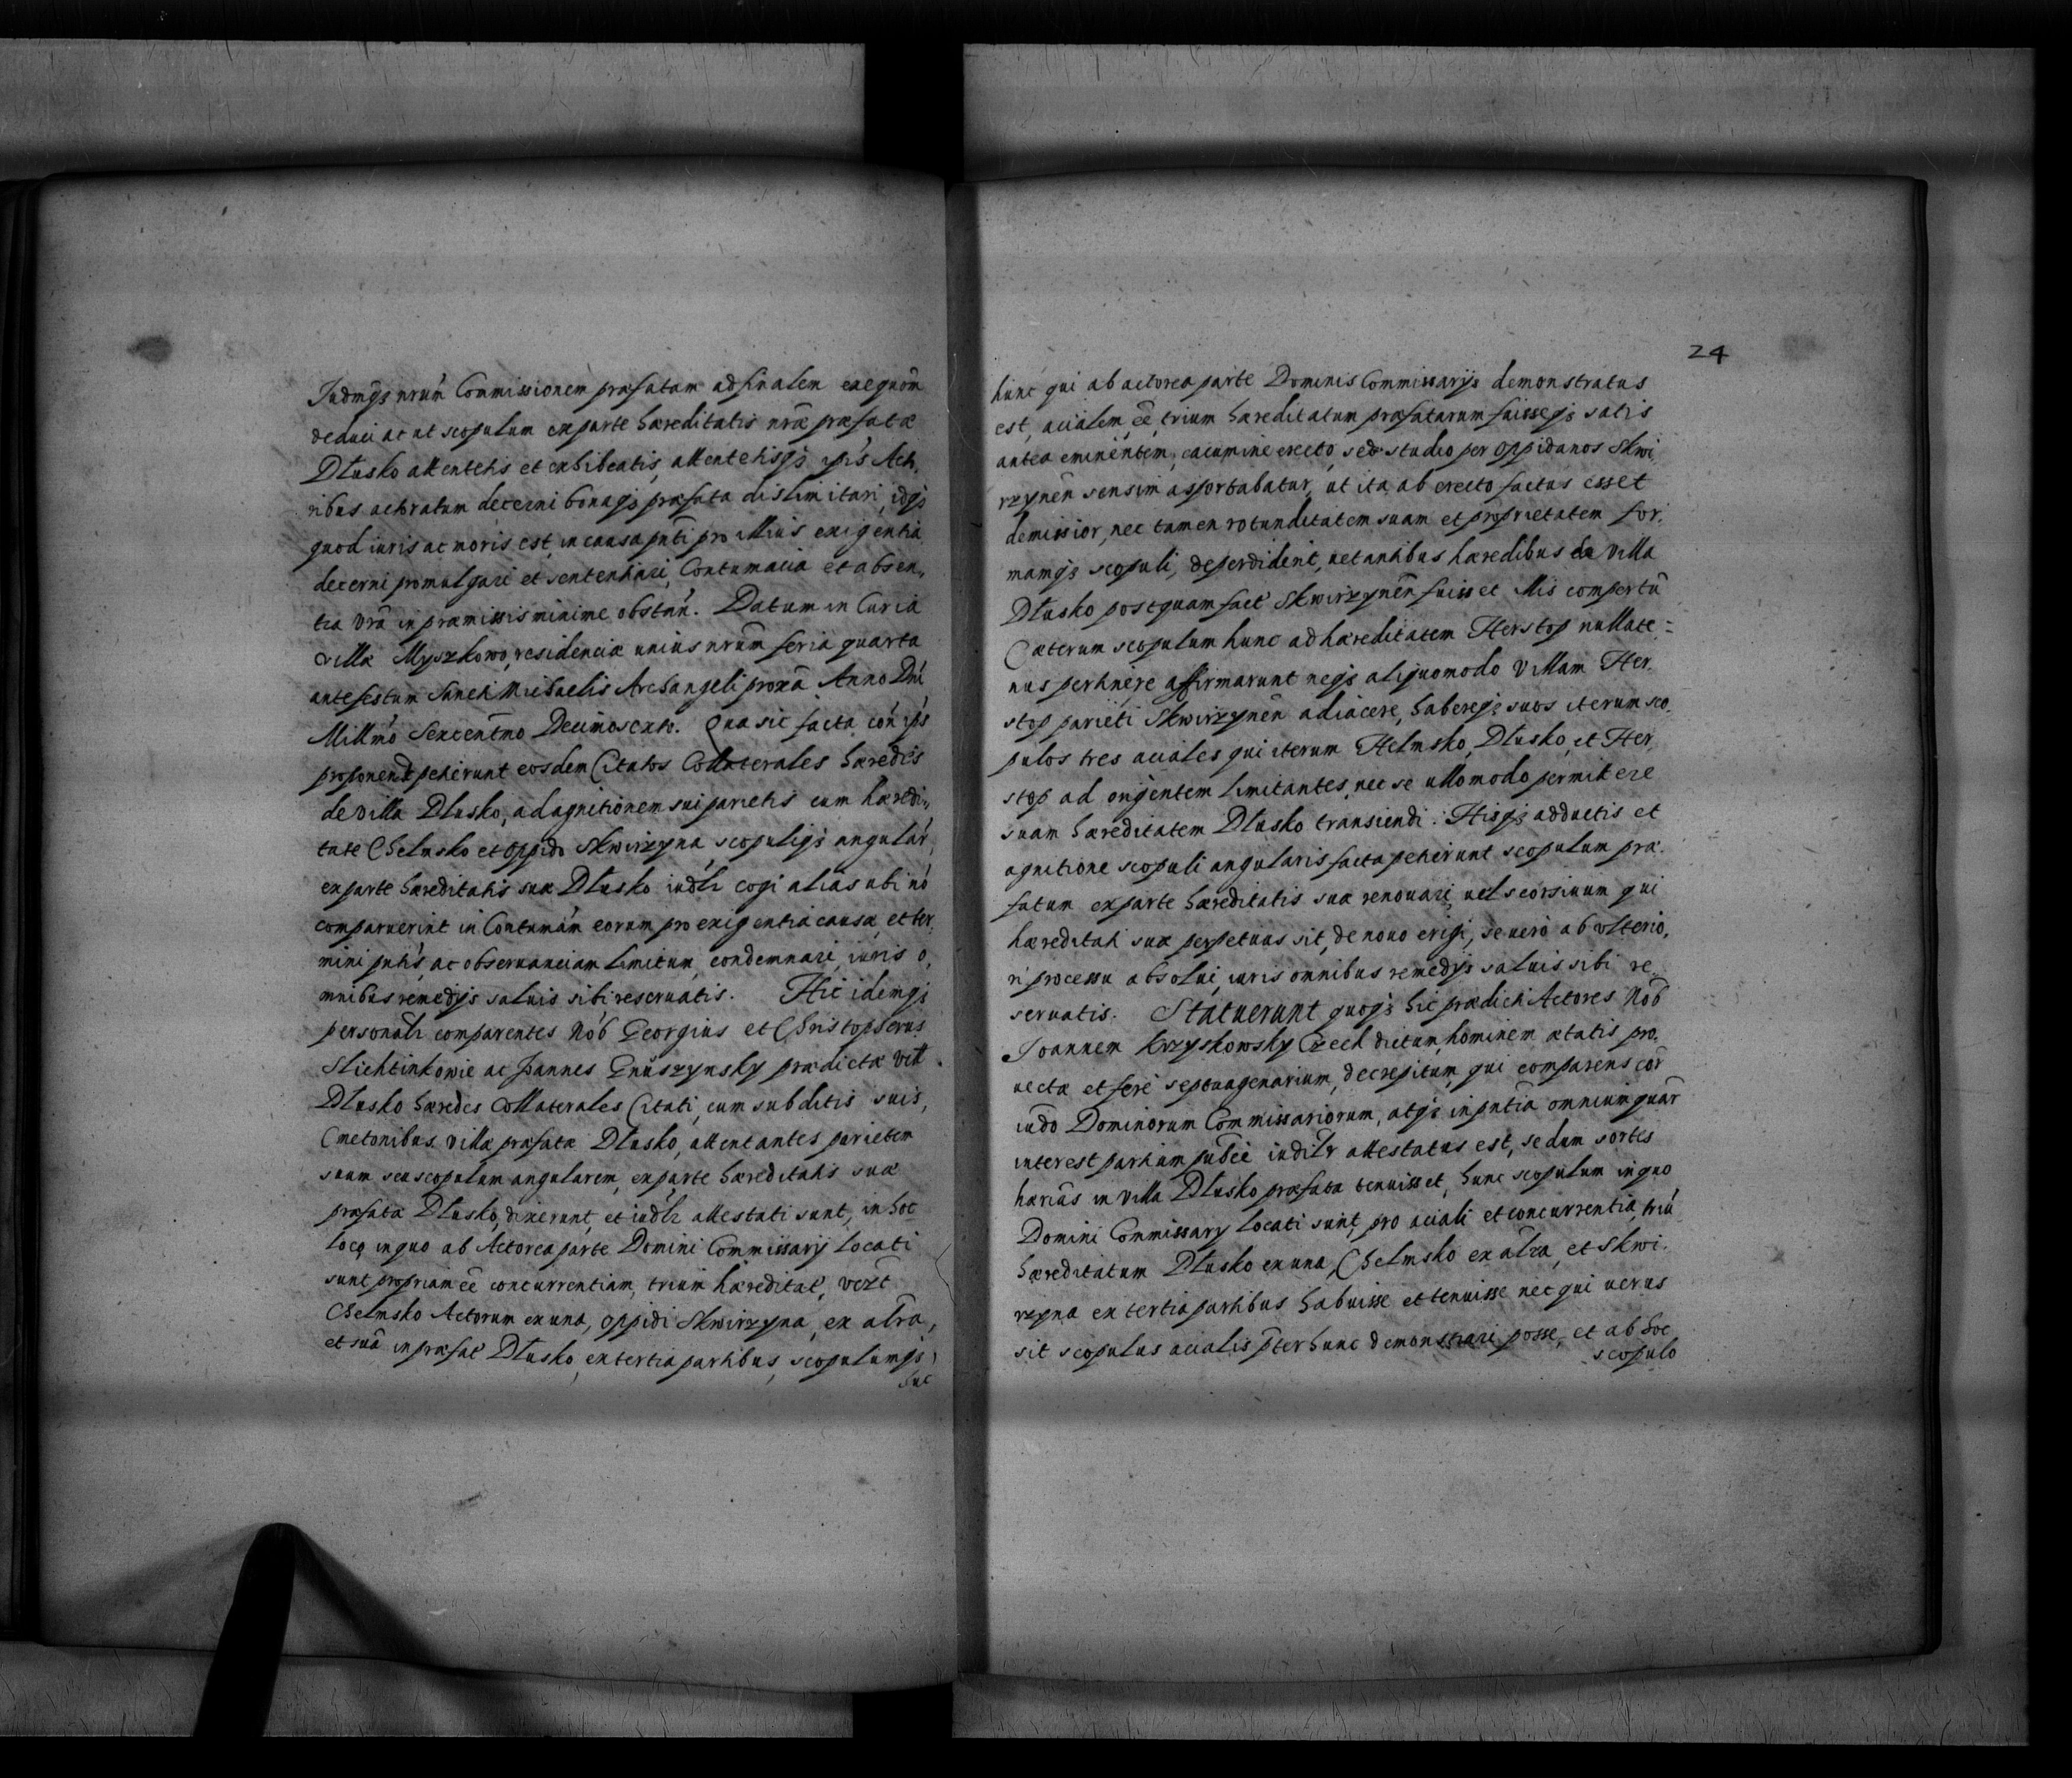 Iudmq3 nrum Commissionem præfatam ad finalem exequom
deduci ac ut scopulum ex parte hæreditatis nræ præfatæ
Dłusko attentetis et exhibeatis, attentetisq3 ipis Acto,
ribus actoratum decerni bonaq3 præfata dislimitari, idq3
quod iuris ac moris est, in causa pnti pro illius exigentia
decerni promulgari et sententiari, Contumacia et absen,
tia vra in præmissis minime obstan. Datum in Curia
villæ Myszkowo, residenciæ unius nrum feria quarta
ante festum Sancti Michaelis Archangeli proxa Anno Dni
Millmo Sexcentmo Decimosexto. Qua sic facta con ips
proponend petierunt eosdem Citatos Collaterales hæredes
de villa Dlusko, ad agnitionem sui parietis cum hæredi,
tate Chelmsko et oppido Skwirzyna, scopuliq3 angular,
ex parte hæreditatis suæ Dłusko iudlr cogi alias ubi no
comparuerint in Contumam eorum pro exigentia causæ, et ter,
mini pntis ac observanciam limitum, condemnari, iuris o,
mnibus remedijs saluis sibi reseruatis. Hic idemq3
personalr comparentes Nob Georgius et Christopherus
Slichtinkowie ac Joannes Gnuszynsky prædictæ vill
Dlusko hæredes Collaterales Citati, cum subditis suis,
Cmetonibus villæ præfatæ Dlusko, attentantes parietem
suum seu scopulum angularem, ex parte hæreditatis suæ
præfatæ Dlusko, dixerunt, et iudlr attestati sunt, in hoc
loco in quo ab Actorea parte Domini Commissarij locati
sunt propriam ee concurrentiam, trium hæreditat, vezt
Chelmsko Actorum ex una, oppidi Skwirzyna, ex altra,
et sua in præfat Dlusko, ex tertia partibus, scopulumq3
huc
24
hunc qui ab actorea parte Dominis Commissarijs demonstratus
est, acialem, ee, trium hæreditatum præfatarum fuisseq3 satis
antea eminentem, cacumine erecto, sed studio per oppidanos Skwi
rzynen sensim asportabatur, ut ita ab erecto factus esset
demissior, nec tamen rotunditatem suam et proprietatem for,
mamq3 scopuli, deperdiderit, uetantibus hæredibus de villa
Dłusko postquam fact Skwirzynen fuisset illis compertu
Cæterum scopulum hunc ad hæreditatem Herstop nullate=
nus pertinere affirmarunt neq3 aliquomodo villam Her,
stop parieti Skwirzynen adiacere, habereq3 suos iterum sco,
pulos tres aciales qui iterum Helmsko, Dlusko, et Her,
stop ad origentem limitantes, nec se ullomodo permittere
suam hæreditatem Dlusko transiendi. Hisq3 adductis et
agnitione scopuli angularis facta petierunt scopulum præ,
fatum ex parte hæreditatis suæ renouari, uel seorsiuum qui
hæreditati suæ perpetuus sit, de nouo erigi, se uero ab vlterio,
ri processu absolui, iuris omnibus remedijs saluis sibi re
seruatis. Statuerunt quoq3 hic prædicti Actores Nob
Joannem Krzyskowsky Czech dictum, hominem ætatis pro,
uectæ et fere septuagenarium, decrepitum, qui comparens cor
iudo Dominorum Commissariorum, atq3 in pntia omnium quar
interest partium publce iudilr attestatus est, se dum sortes
harias in villa Dlusko præfata tenuisset, hunc scopulum in quo
Domini Commissary locati sunt, pro aciali et concurrentia, triu
hæreditatum Dlusko ex una, Chelmsko ex altra, et Skwi,
rzyna ex tertia partibus habuisse et tenuisse nec qui uerus
sit scopulus acialis pter hunc demonstrari posse, et ab hoc
scopulo